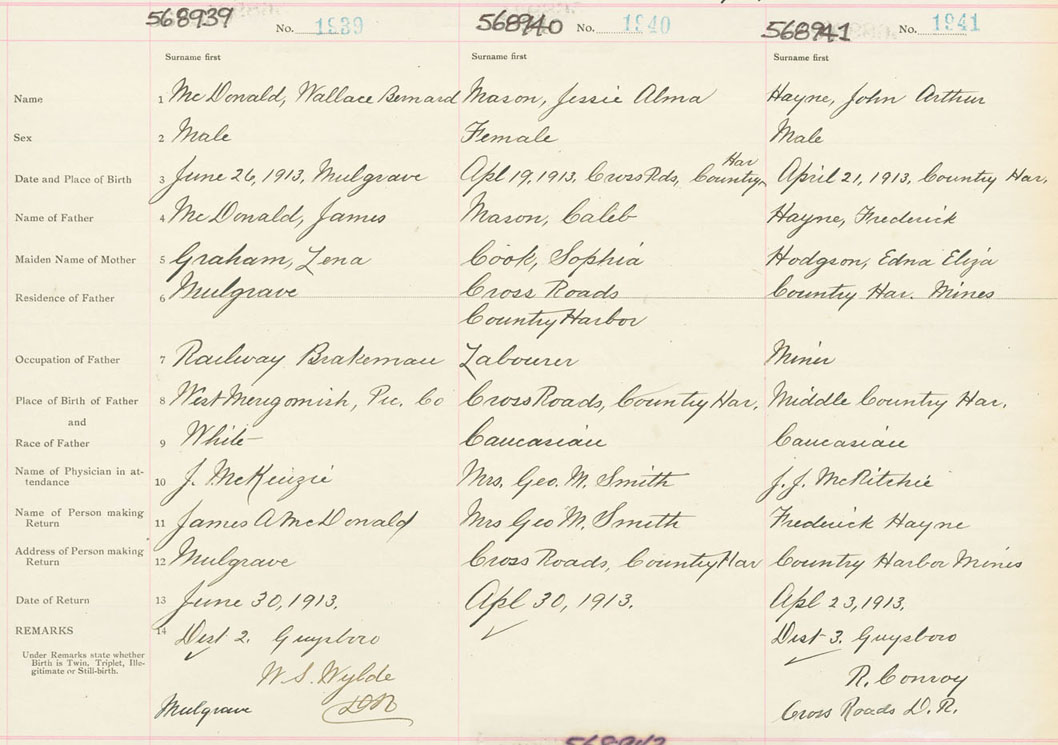 568939 No. 1939 568940 No. 1940 568941 No. 1941
Surname first Surname first Surname first
Name 1 McDonald, Wallace Bernard Mason, Jessie Alma Hayne, John Arthur
Sex 2 Male Female Male
Har
Date and Place of Birth 3 June 26, 1913, Mulgrave Apl 19, 1913, Cross Rds, Country April 21, 1913, Country Har.
Name of Father 4 McDonald, James Mason, Caleb Hayne, Frederick
Maiden Name of Mother 5 Graham, Lena Cook, Sophia Hodgson, Edna Eliza
Residence of Father 6 Mulgrave Cross Roads Country Har. Mines
Country Harbor
Occupation of Father 7 Railway Brakeman Labourer Miner
Place of Birth of Father 8 West Merigomish, Pic. Co Cross Roads, Country Har, Middle Country Har.
and
Race of Father 9 White Caucasian Caucasian
Name of Physician in at-
tendance 10 J. McKenzie Mrs. Geo. M. Smith J. J. McRitchie
Name of Person making
Return 11 James A McDonald Mrs Geo M. Smith Frederick Hayne
Address of Person making
Return 12 Mulgrave Cross Roads, Country Har Country Harbor Mines
Date of Return 13 June 30, 1913. Apl 30, 1913. Apl 23, 1913.
REMARKS 14 Dist 2. Guysboro Dist 3. Guysboro
Under Remarks state whether
Birth is Twin, Triplet, Ille-
gitimate or Still-birth.
W. S. Wylde R. Conroy
Mulgrave DR Cross Roads D. R.